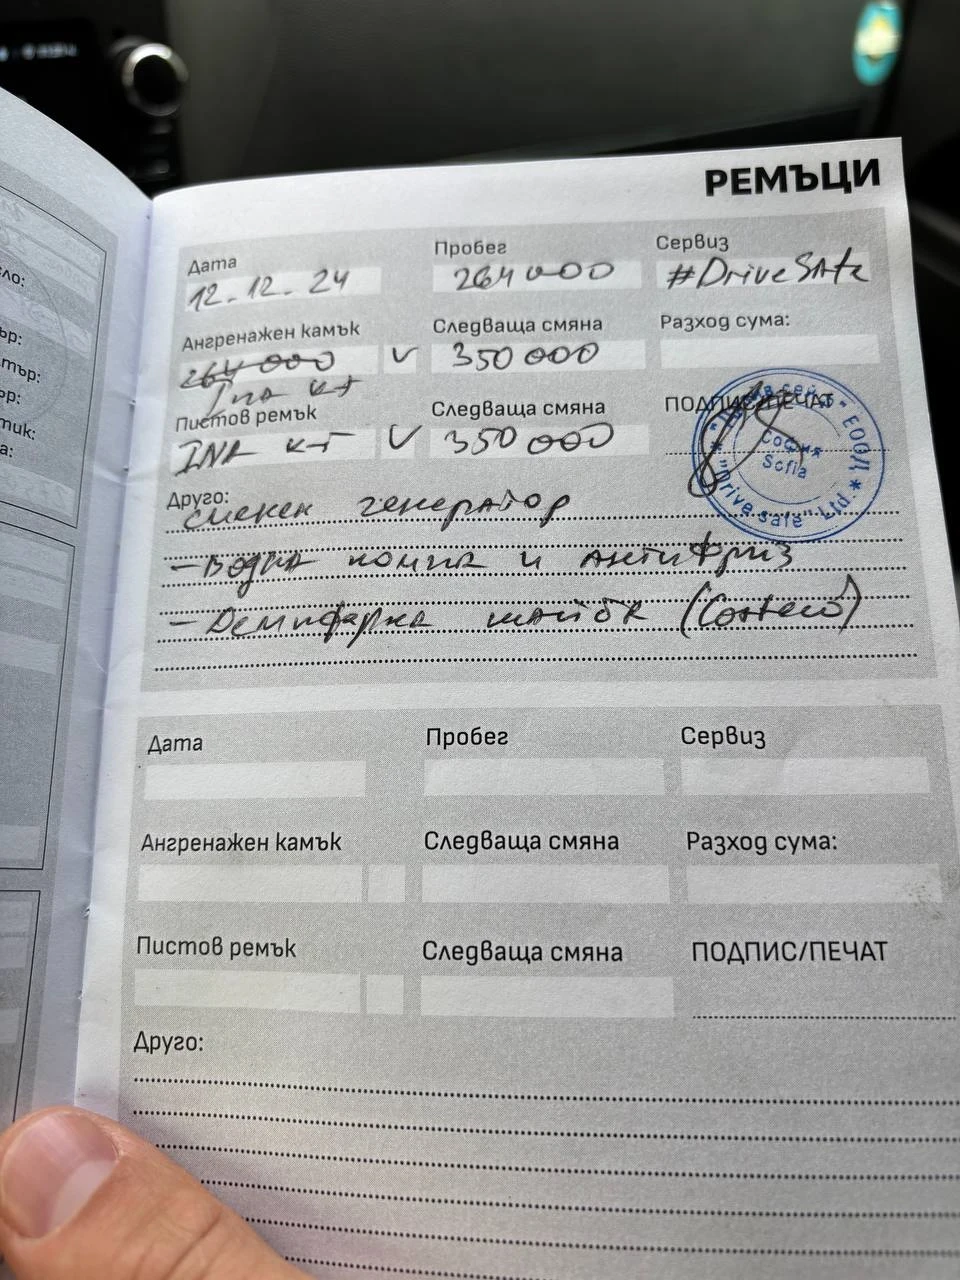 РЕМЪЦИ
Дата Пробег Сервиз
12.12.24 264000 #DriveSafe
Ангренажен камък Следваща смяна Разход сума:
264 000 V 350 000
Ina КТ
Пистов ремък Следваща смяна ПОДПИС/ПЕЧАТ
INA КТ V 350 000
София
Sofia
"Drive safe" Ltd. * ЕООД *
Друго:
сменен генератор
- водна помпа и антифриз
- Демпферна шайба (Corteco)
Дата Пробег Сервиз
Ангренажен камък Следваща смяна Разход сума:
Пистов ремък Следваща смяна ПОДПИС/ПЕЧАТ
Друго: